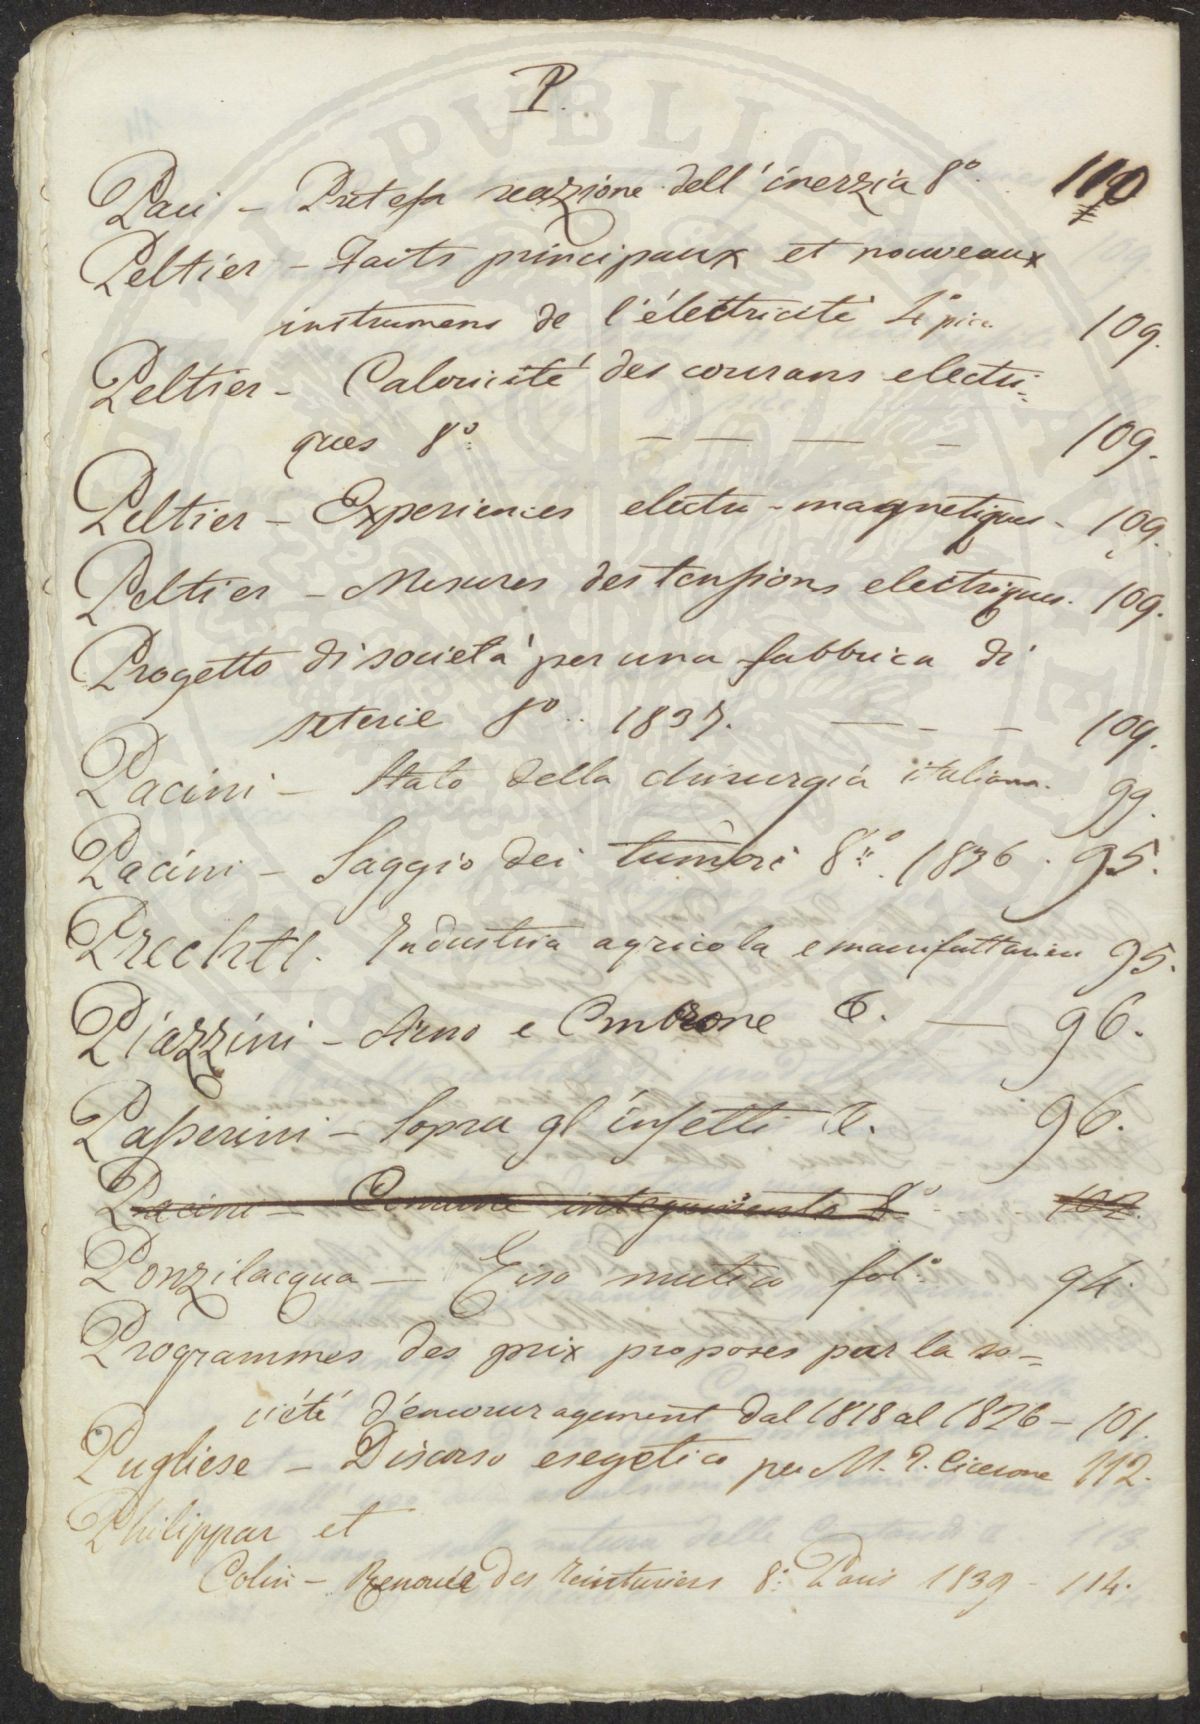 P.
Paci - Pretesa reazione dell'inerzia 8º. 110
Peltier - Faits principaux et nouveaux
instrumens de l'électricité 4º picc. 109.
Peltier - Caloricité des courans electri=
ques 8º. - - - - 109.
Peltier - Experiences electro-magnetiques - 109.
Peltier - Mesures des tensions electriques. 109.
Progetto di società per una fabbrica di
seterie 8º. 1837. - - - 109.
Pacini - Stato della chirurgia italiana. 99.
Pacini - Saggio dei tumori 8º. 1836. 95.
Prechtl. Industria agricola e manifatturiera 95.
Piazzini - Arno e Ombrone 8. - 96.
Passerini - Sopra gl'insetti 8. 96.
Pacini - Comune integumento 8º - 102.
Ponzilacqua - Eiso mutico fol.º 94.
Programmes des prix proposes par la so=
ciété d'encouragement dal 1818 al 1826 - 101.
Pugliese - Discorso esegetico per M. T. Cicerone 112.
Philippar et
Colin - Renouée des teinturiers 8º. Paris 1839 - 114.